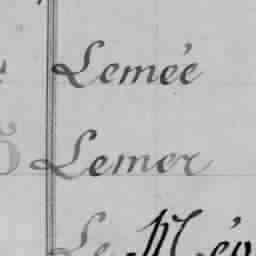 Lemée
Lemer
Le Méo